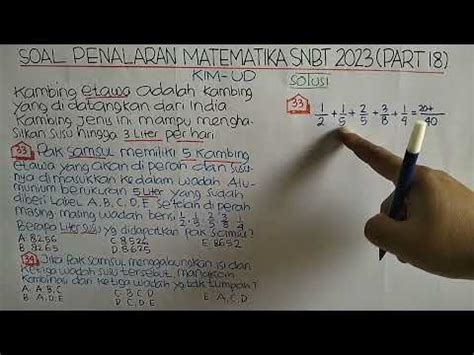 SOAL PENALARAN MATEMATIKA SNBT 2023 (PART 18)
KIM-UD
Kambing etawa adalah kambing
yang di datangkan dari India
Kambing jenis ini mampu mengha-
silkan susu hingga 3 Liter per hari
33 Pak Samsul memiliki 5 kambing
etawa yang akan di perah dan susu-
nya di masukkan kedalam wadah Alu-
munium berukuran 5 Liter yang sudah
diberi Label A, B, C, D, E setelah di perah
masing-masing wadah berisi 1/2, 1/5, 2/5, 3/8, 1/4
Berapa Liter susu yg didapatkan pak Samsul?
A. 8256
B. 8265
C. 8524
D. 8625
E. 8652
34 Jika Pak Samsul menggabungkan isi dari
ketiga wadah susu tersebut, manakah
kombinasi dari ketiga wadah yg tdk tumpah?
A. A, B, C
B. A, D, E
C. B, C, D
D. C, D, E
SOLUSI
33 1/2 + 1/5 + 2/5 + 3/8 + 1/4 = 20+/40